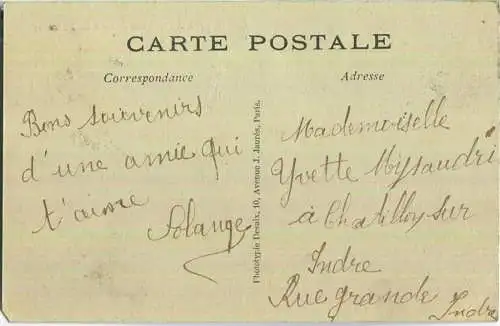 CARTE POSTALE
Correspondance
Adresse
Bons souvenirs
d'une amie qui
t'aime
Solange
Phototypie Desaix, 10, Avenue J. Jaurès, Paris.
Mademoiselle
Yvette
à Chatillon sur
Indre
Rue grande Indre